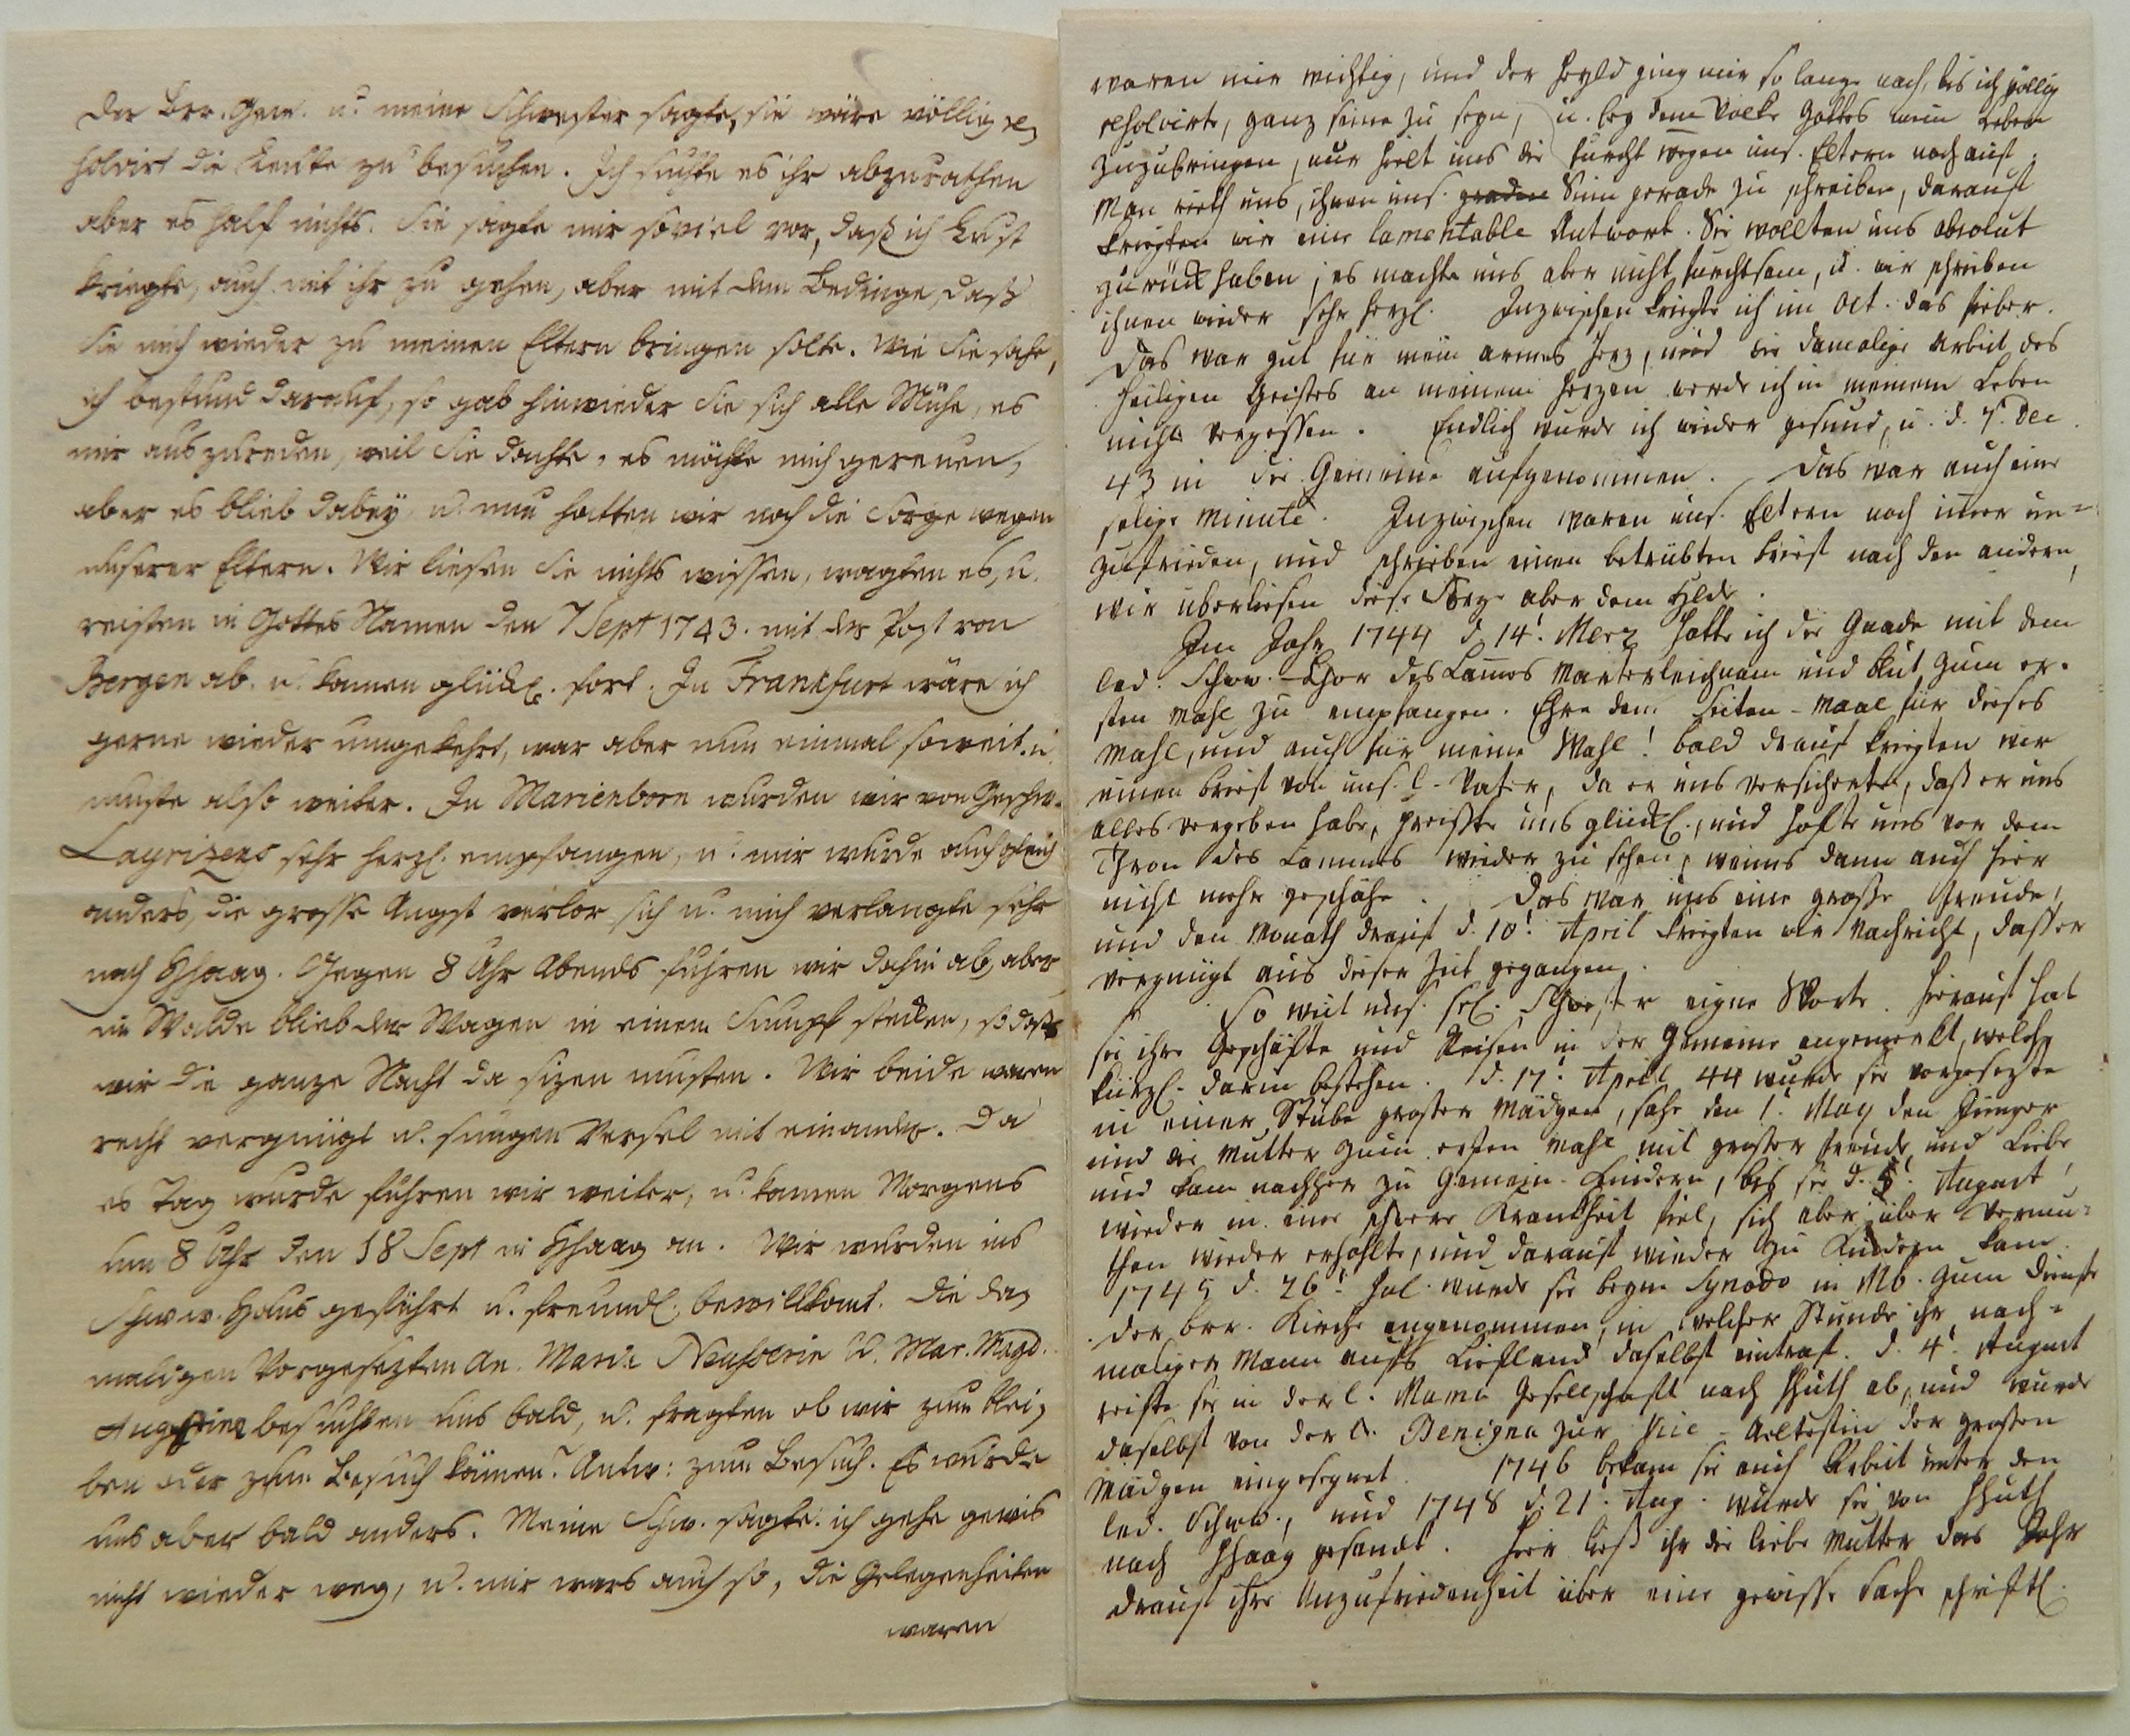 der Brr. Gem. u. meine Schwester sagte, sie wäre völlig re-
solvirt die Leute zu besuchen. Ich suchte es ihr abzurathen
aber es half nichts. Sie sagte mir soviel vor, daß ich Lust
kriegte, auch mit ihr zu gehen, aber mit dem Bedinge, daß
sie mich wieder zu meinen Eltern bringen solte. Wie sie sahe,
ich bestund darauf, so gab hinwieder sie sich alle Mühe, es
mir auszureden, weil sie dachte, es möchte mich gereuen,
aber es blieb dabey, u. nun hatten wir noch die Sorge wegen
unserer Eltern. Wir liesen sie nichts wissen, wagten es, u.
reisten in Gottes Namen den 7 Sept 1743. mit der Post von
Bergen ab. u. kamen glückl. fort. In Frankfurt wäre ich
gerne wieder umgekehrt, war aber nun einmal soweit. u.
muste also weiter. In Marienborn wurden wir von Geschw.
Layrizens sehr herzl. empfangen, u. mir wurde auch gleich
anders, die grosse Angst verlor sich u. mich verlangte sehr
nach Hhaag. Gegen 8 Uhr Abends fuhren wir dahin ab, aber
im Walde blieb der Wagen in einem Sumpf stecken, so daß
wir die ganze Nacht da sizen musten. Wir beide waren
recht vergnügt u. sungen Versel mit einander. Da
es Tag wurde fuhren wir weiter, u. kamen Morgens
um 8 Uhr den 18 Sept in Hhaag an. Wir wurden ins
Schww. Haus geführt u. freundl. bewillkomt. Die da-
maligen Vorgesezten An. Maria u. Mar. Magd.
besuchten uns bald, u. fragten ob wir zum blei-
ben oder zum Besuch kämen? Antw: zum Besuch. Es wurde
uns aber bald anders. Meine Schw. sagte: ich gehe gewis
nicht wieder weg, u. mir wars auch so, die Gelegenheiten
waren
waren mir wichtig, und der Heyld ging mir so lange nach, bis ich völlig
resolvirte, ganz seine zu seyn, u. bey dem Volke Gottes mein Leben
zuzubringen, nur hielt uns die furcht wegen uns. Eltern noch auf.
Man rieth uns, ihnen uns. graden Sinn gerade zu schreiben, darauf
kriegten wir eine lamentable Antwort. Sie wollten uns absolut
zurück haben; es machte uns aber nicht furchtsam, u. wir schrieben
ihnen wieder sehr herzl. Inzwischen kriegte ich im Oct. das fieber.
Das war gut für mein armes Herz, und die damalige Arbeit des
Heiligen Geistes an meinem Herzen werde ich in meinem Leben
nicht vergessen. Endlich wurde ich wieder gesund, u. d. Dec.
43 in die Gemeine aufgenommen. Das war auch eine
selige Minute. Inzwischen waren uns. Eltern noch imer un-
zufrieden, und schrieben einen betrübten brief nach den andern,
wir überliesen diese Sorge aber dem Hlde.
Im Jahr 1744 d. 14. Merz hatte ich die Gnade mit dem
led. Schww. Chor des Lammes Marterleichnam und Blut zum er-
sten mahl zu empfangen. Ehre dem Seiten-Maal für dieses
Mahl, und auch für meine Wahl! bald drauf kriegten wir
einen brief von uns. l. Vater, da er uns versicherte, daß er uns
alles vergeben habe, preißte uns glückl., und hofte uns vor dem
Thron des Lammes wieder zu sehen, wenns dann auch hier
nicht mehr geschähe. Das war uns eine große freude,
und den Monath drauf d. 10. April kriegten wir Nachricht, daß er
vergnügt aus dieser Zeit gegangen.
So weit uns. sel. Schwester eigne Worte. Hierauf hat
sie ihre Geschäfte und Reisen in der Gemeine angemerkt, welche
kürzl. darin bestehen. d. 17. April 44 wurde sie vorgesezte
in einer Stube großer Mädgen, sahe den 1. May den Jünger
und die Mutter zum ersten mahl mit großer freude und Liebe
und kam nachher zu Gemein-Kindern, bis sie d. August
wieder in eine schwere Krankheit fiel, sich aber über Vermu-
then wieder erholte, und darauf wieder zu Kindern kam.
1745 d. 26. Jul. wurde sie beym Synodo in Mb. zum Dienste
der brr. Kirche angenommen, in welcher Stunde ihr nach-
maliger Mann aufs Liefland daselbst eintraf. d. 4. August
reiste sie in der l. Mama Gesellschaft nach Hhuth ab, und wurde
daselbst von der l. Benigna zur Vice-Aeltestin der großen
Mädgen eingesegnet. 1746 bekam sie auch Arbeit unter den
led. Schww., und 1748 d. 21. Aug. wurde sie von Hhuth
nach Hhaag gesandt. Hier ließ ihr die liebe Mutter das Jahr
drauf ihre Unzufriedenheit über eine gewisse Sache schriftl.